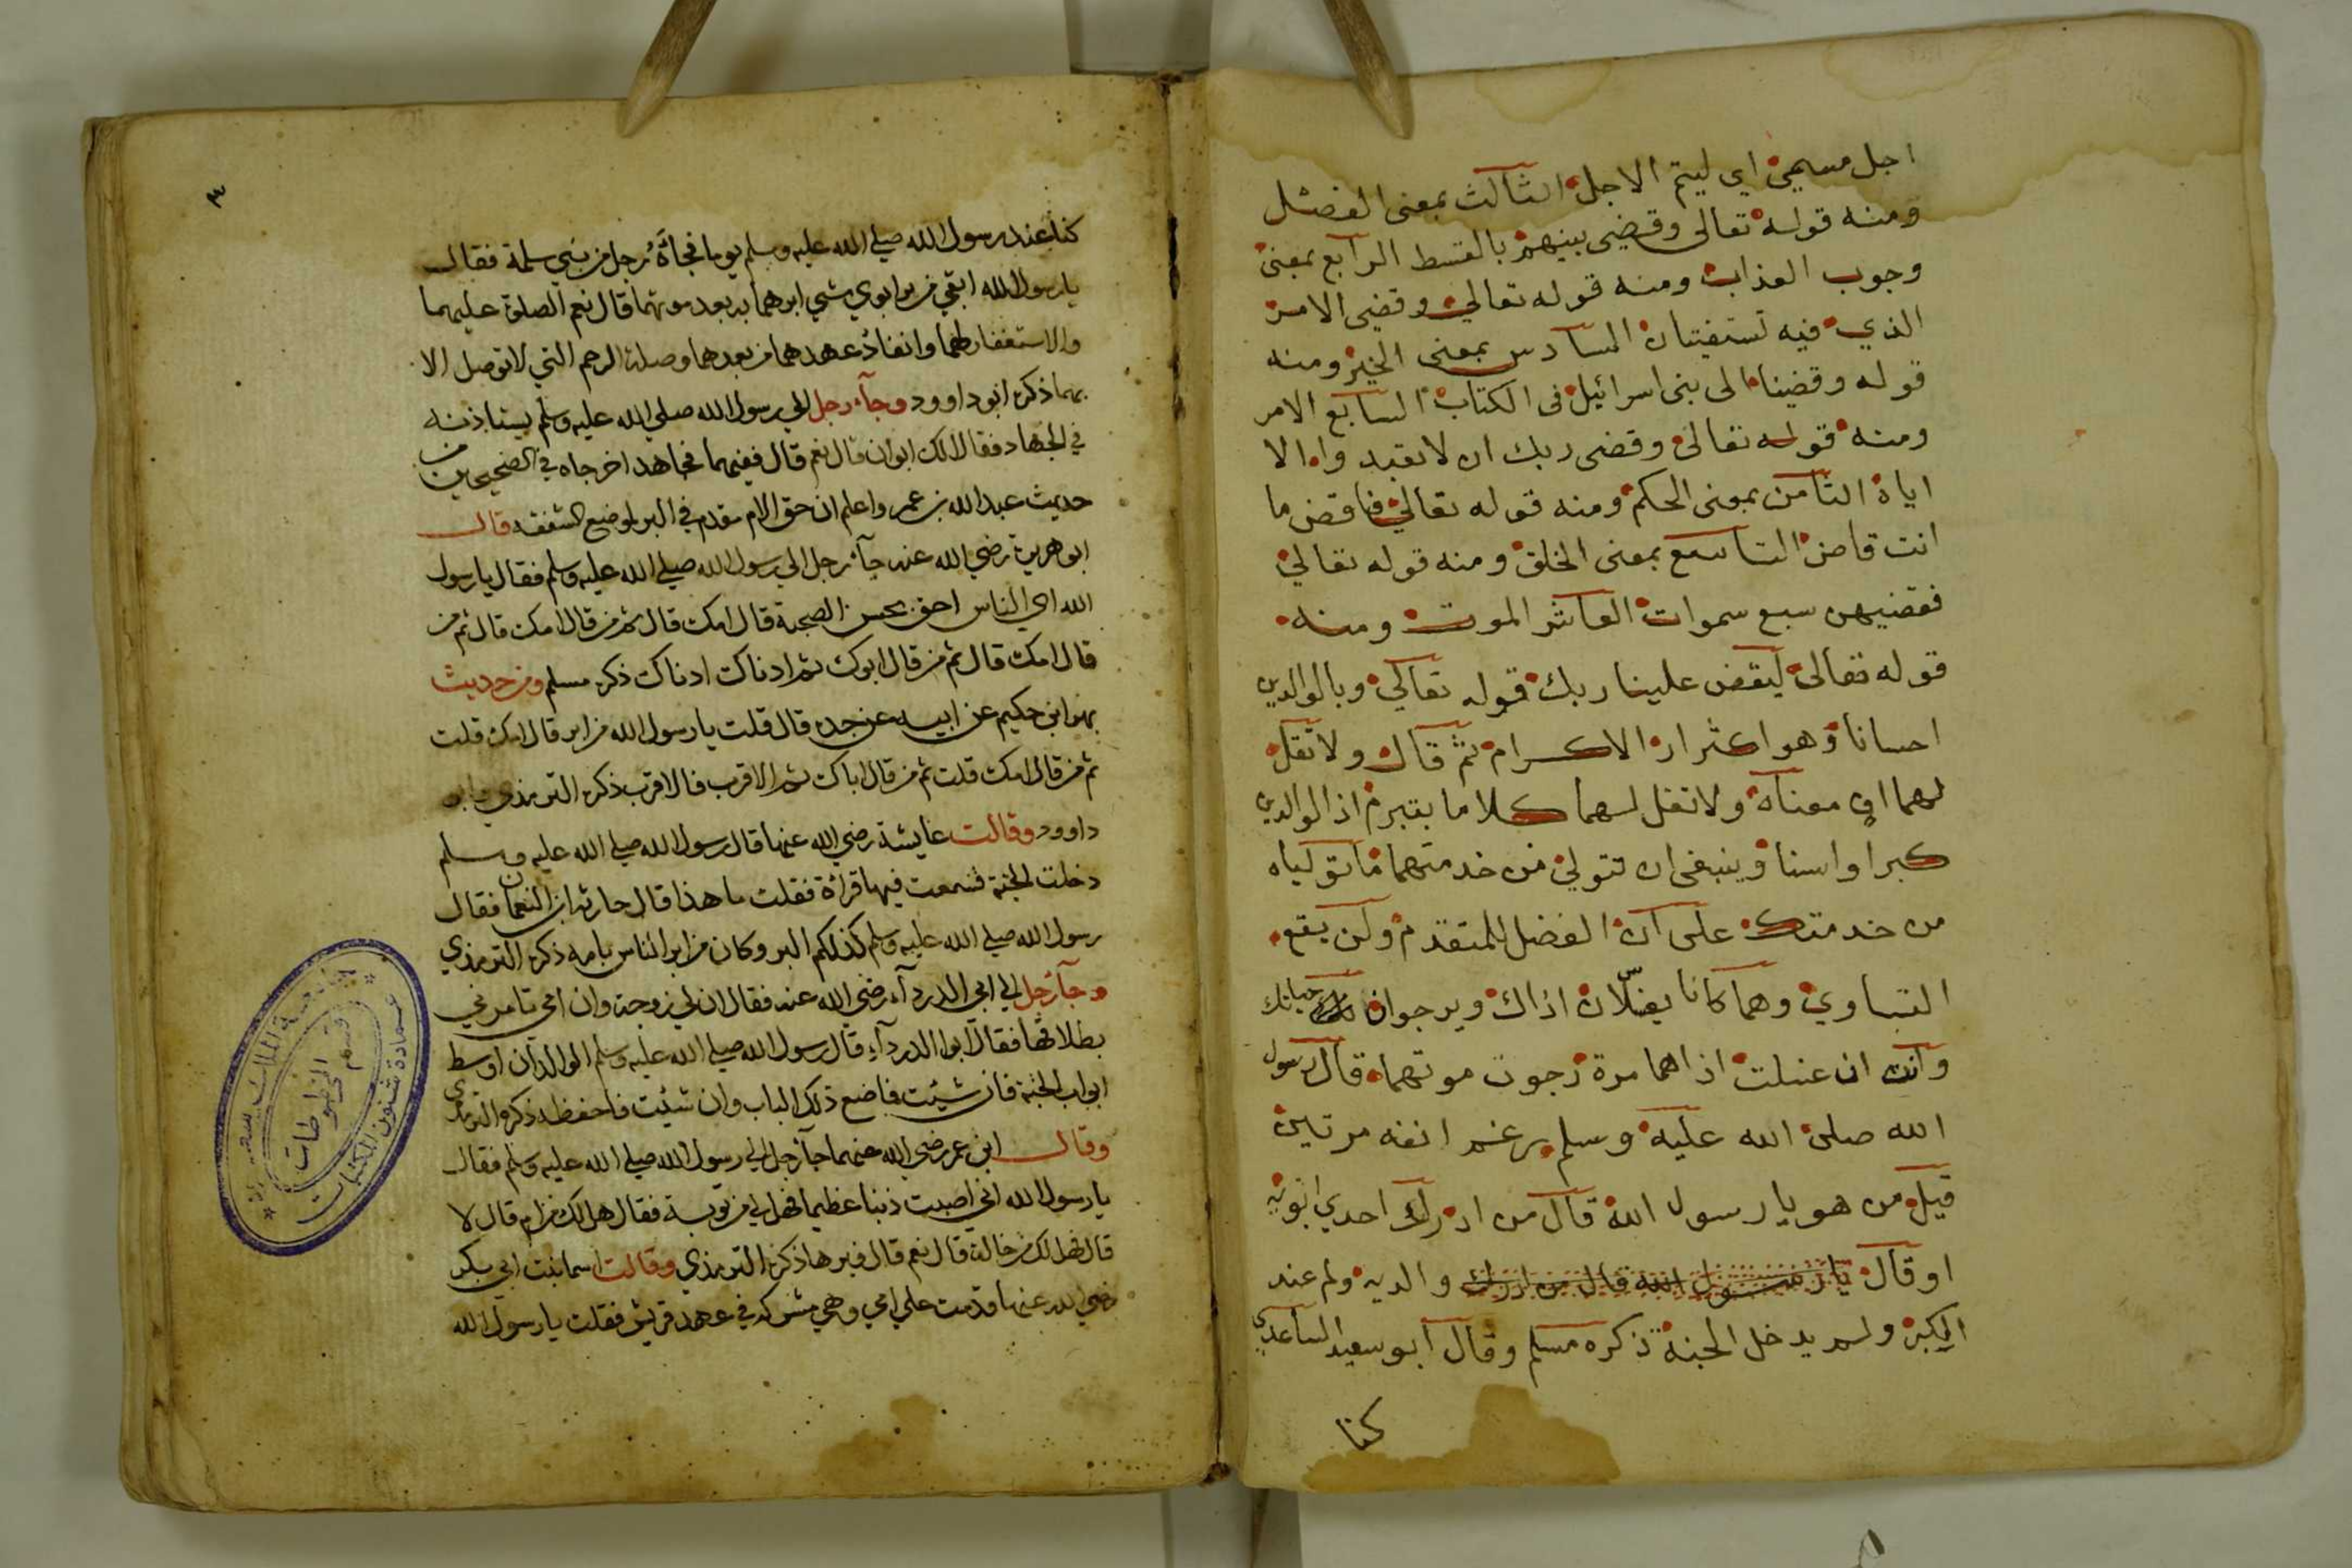 اجل مسمي اي ليتم الاجل الثالث بمعنى الفصل
ومنه قوله تعالى وقضى بينهم بالقسط الرابع بمعنى
وجوب العذاب ومنه قوله تعالي وقضي الامر
الذي فيه تستفتيان السادس بمعنى الخبر ومنه
قوله وقضينا الى بنى اسرائيل فى الكتاب السابع الامر
ومنه قوله تعالى وقضى ربك ان لا تعبدوا الا
اياه الثامن بمعنى الحكم ومنه قوله تعالي فاقض ما
انت قاض التاسع بمعنى الخلق ومنه قوله تعالي
فقضيهن سبع سموات العاشر الموت ومنه
قوله تعالى ليقض علينا ربك قوله تعالي وبالوالدين
احسانا وهو اكثر الاكرام ثم قال ولا تقل
لهما اف معناه ولا تقل لهما كلاما يتبرم اذا الوالدين
كبرا واسنا وينبغى ان تتولي من خدمتهما ما تولياه
من خدمتك على ان الفضل للمتقدم ولن يقع
التساوي وهما كانا يغسلان اذاك ويرجوان حياتك
وانت ان غسلت اذاهما مرة رجوت موتهما قال رسول
الله صلى الله عليه وسلم رغم انفه مرتين
قيل من هو يا رسول الله قال من ادرك احدي ابويه
او قال يا رسول الله قال من ادرك والديه ولم عند
الكبر ولم يدخل الجنة ذكره مسلم وقال ابو سعيد الساعدي
كنا
٣
كنا عند رسول الله صلي الله عليه وسلم يوما فجاءه رجل من بني سلمة فقال
يا رسول الله ابقي من بر ابوي شي ابرهما به بعد موتهما قال نعم الصلوة عليهما
والاستغفار لهما وانفاذ عهدهما من بعدهما وصلة الرحم التي لا توصل الا
بهما ذكره ابو داوود وجآء رجل الي رسول الله صلي الله عليه وسلم يستاذنه
في الجهاد فقال الك ابوان قال نعم قال ففيهما فجاهد اخرجاه في الصحيحين من
حديث عبد الله بن عمر واعلم ان حق الام مقدم في البر لموضع الشفقه قال
ابو هريرة رضي الله عنه جآء رجل الي رسول الله صلي الله عليه وسلم فقال يا رسول
الله اي الناس احق بحسن الصحبة قال امك قال ثم من قال امك قال ثم من
قال امك قال ثم من قال ابوك ثم ادناك ادناك ذكره مسلم ومن حديث
بهز ابن حكيم عن ابيه عن جده قال قلت يا رسول الله من ابر قال امك قلت
ثم من قال امك قلت ثم من قال اباك ثم الاقرب فالاقرب ذكره الترمذي وابو
داوود وقالت عايشة رضي الله عنها قال رسول الله صلي الله عليه وسلم
دخلت الجنة فسمعت فيها قراة فقلت ما هذا قال حارثه ابن النعمان فقال
رسول الله صلي الله عليه وسلم كذلكم البر وكان من ابر الناس بامه ذكره الترمذي
وجآ رجل الي ابي الدردآء رضي الله عنه فقال ان لي زوجة وان امي تامرني
بطلاقها فقال ابوا الدردآء قال رسول الله صلي الله عليه وسلم الوالدان اوسط
ابواب الجنة فان شيت فاضع ذلك الباب وان شيت فاحفظه ذكره الترمذي
وقال ابن عمر رضي الله عنهما جآ رجل الي رسول الله صلي الله عليه وسلم فقال
يا رسول الله اني اصبت ذنبا عظيما فهل لي من توبة فقال هل لك من ام قال لا
قال فهل لك من خالة قال نعم قال فبرها ذكره الترمذي وقالت اسما بنت ابي بكر
رضي الله عنها قدمت علي امي وهي مشركه في عهد قريش فقلت يا رسول الله
جامعة الملك سعود
قسم المخطوطات
عمادة شئون المكتبات